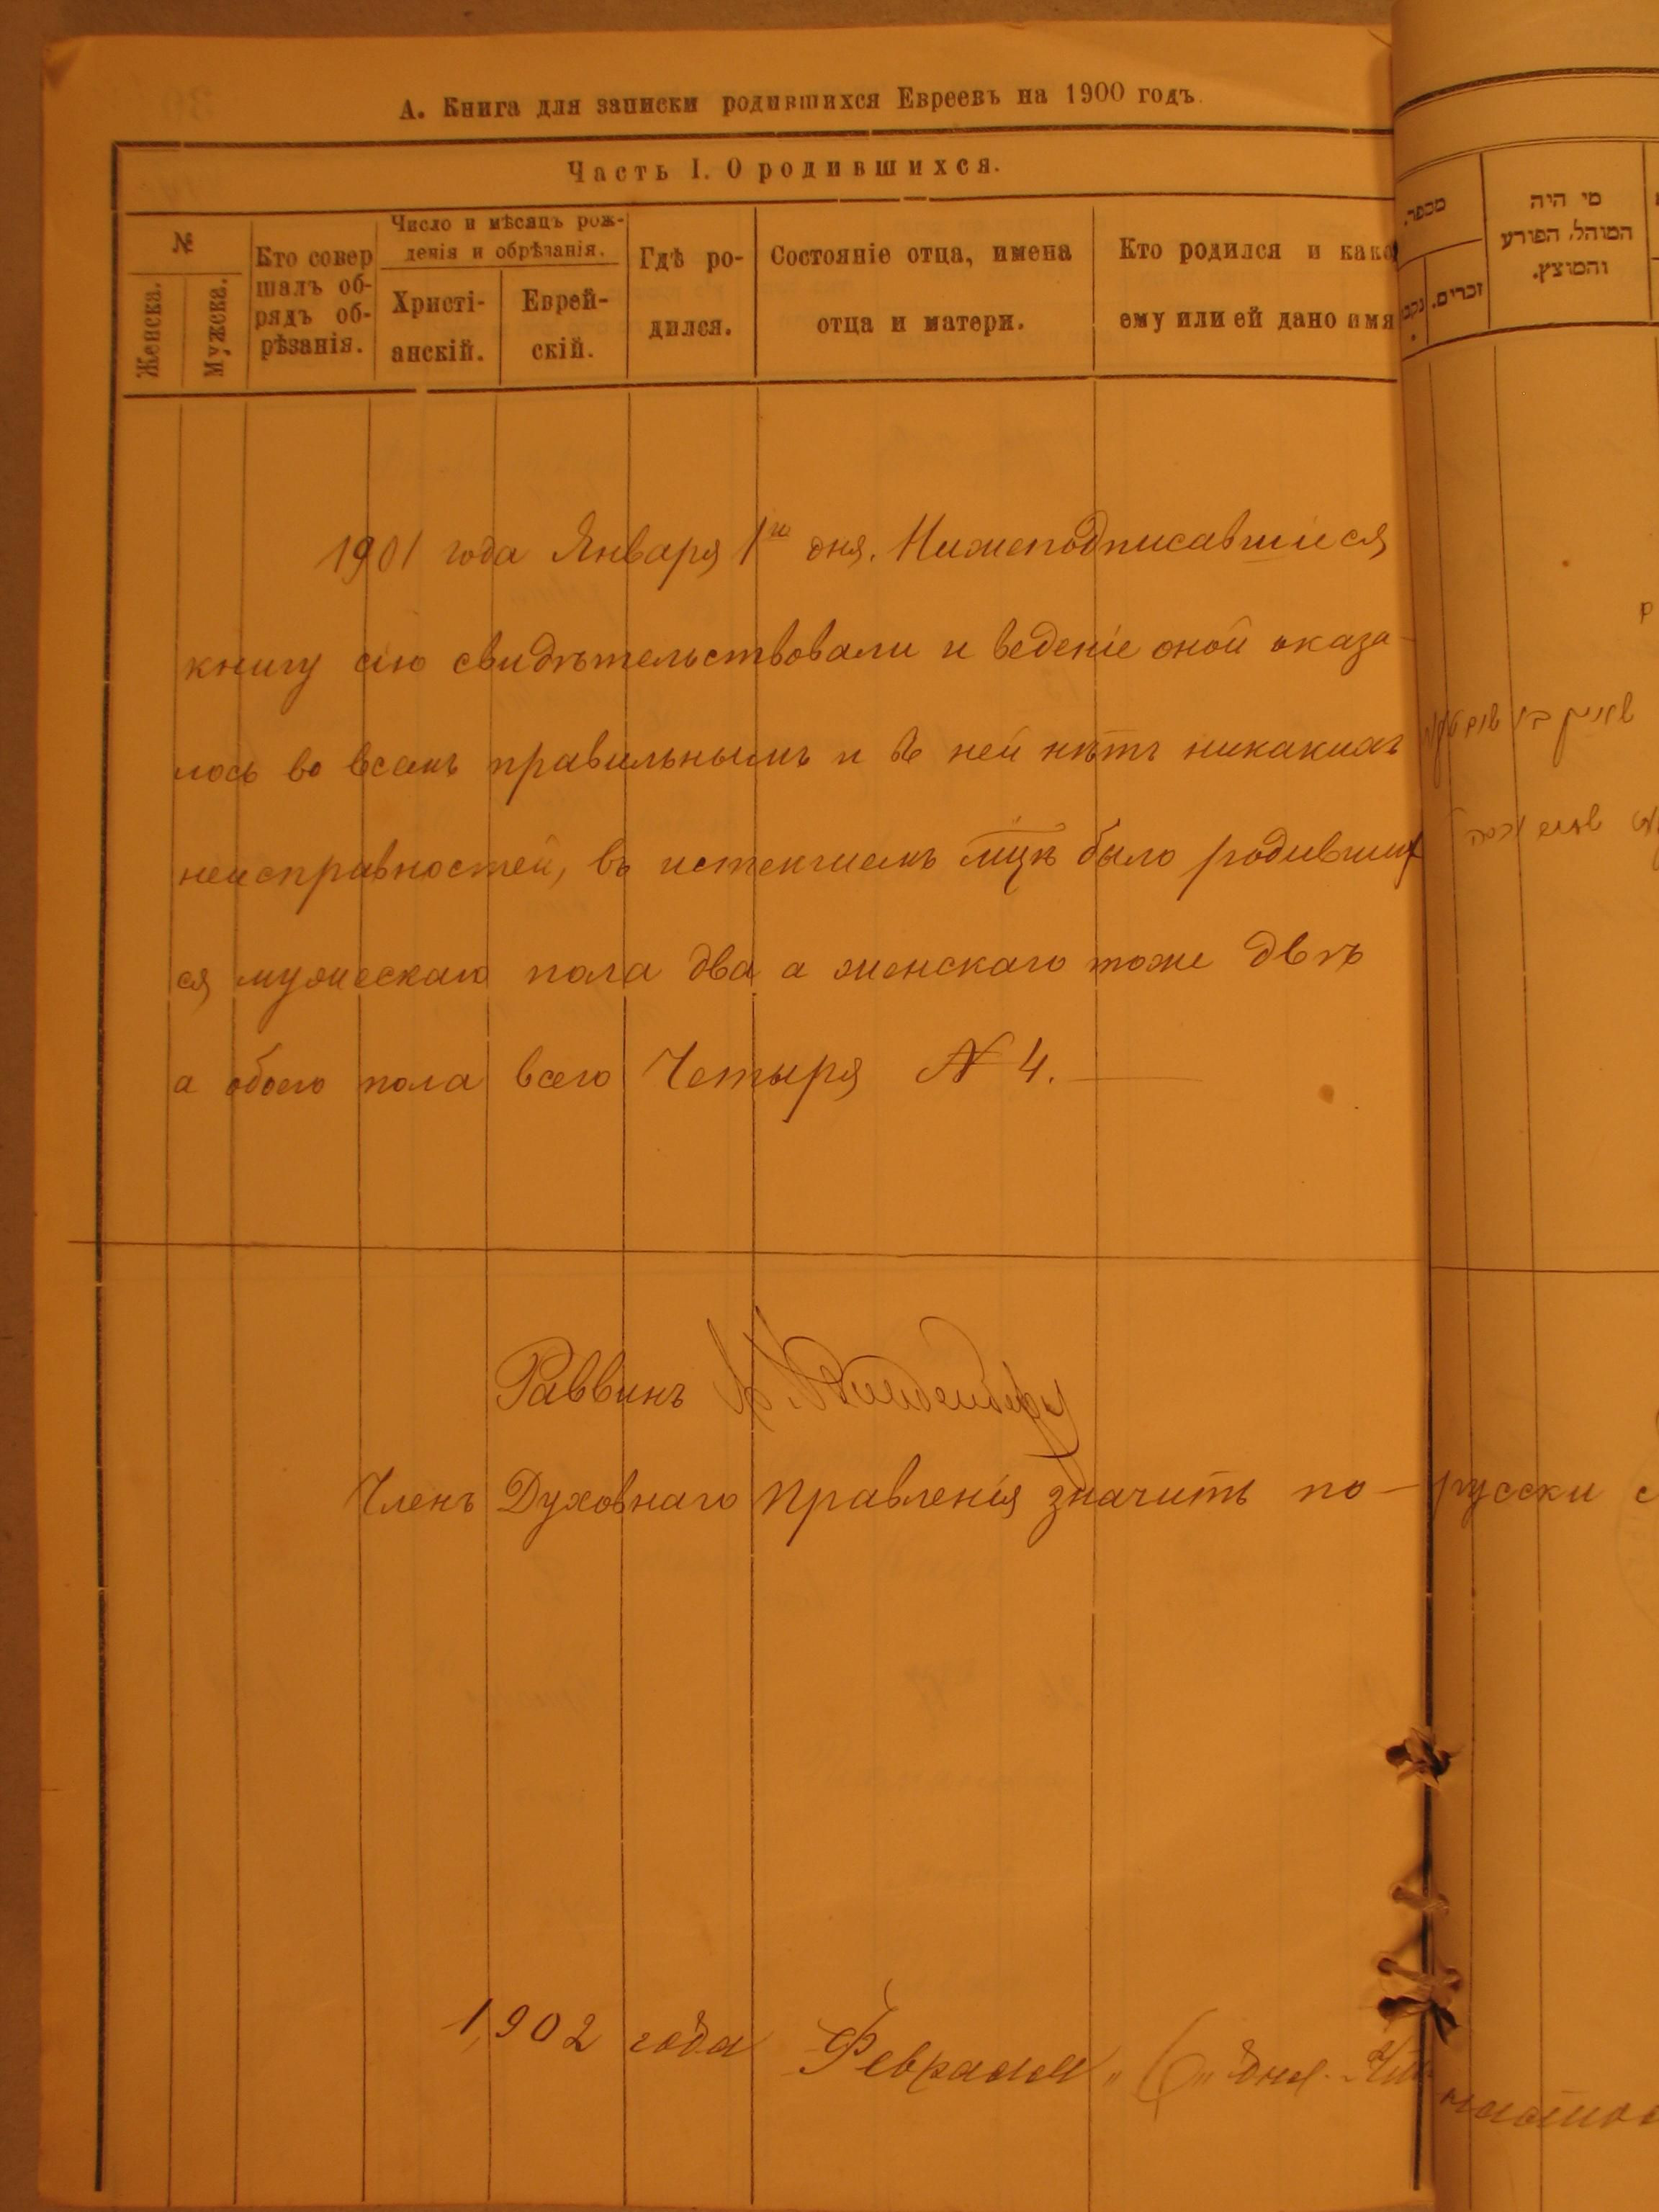 А. Книга для записки родившихся Евреевъ на 1900 годъ.
Часть I. О родившихся.
№
Женска.
Мужска.
Кто совер
шалъ об-
рядъ об-
рѣзанія.
Число и мѣсяцъ рож-
денія и обрѣзанія.
Христі-
анскій.
Еврей-
скій.
Гдѣ ро-
дился.
Состояніе отца, имена
отца и матери.
Кто родился и како
ему или ей дано имя
מספר.
זכרים.
מי היה
המוהל, הפורע
והמוצץ.
1901 года Января 1го дня. Нижеподписавшіися
книгу сію свидѣтельствовали и веденіе оной оказа-
лось во всемъ правильнымъ и въ ней нѣтъ никакихъ
неисправностей, въ истекшемъ мцѣ было родивших
ся мужескаго пола два а женскаго тоже двѣ
а обоего пола всего Четыря № 4.
Раввинъ
Членъ Духовнаго Правленія значитъ по-русски с
1902 года Февраля „6“ дня.